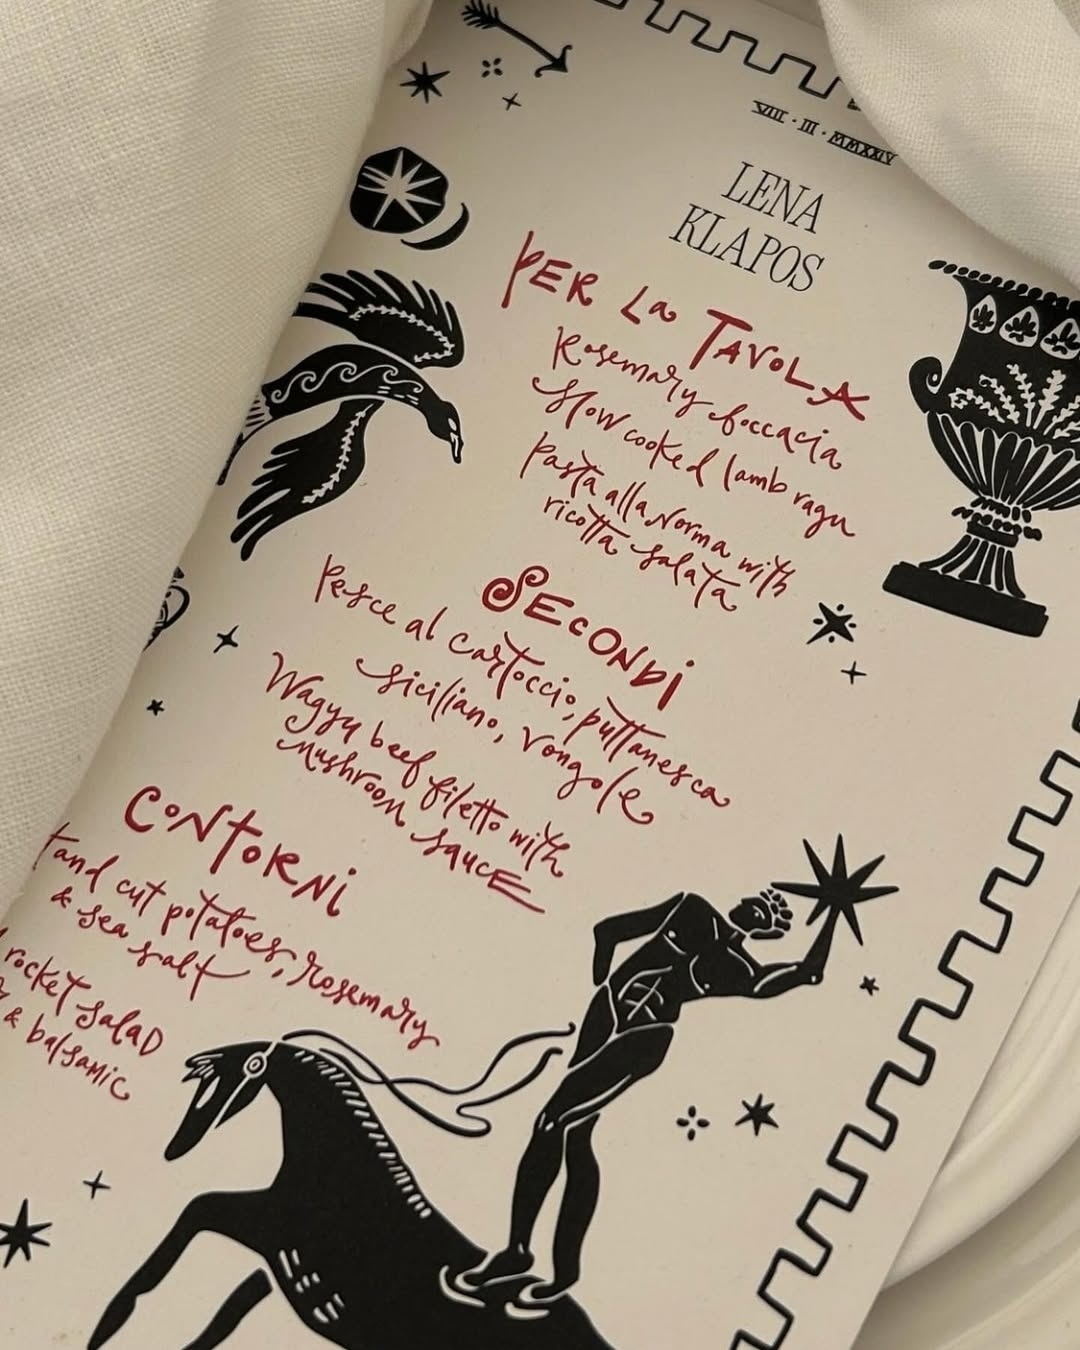 VIII · III · MMXXIV
LENA
KLAPOS
PER La TAVOLA
Rosemary foccacia
Slow cooked lamb ragu
Pasta alla Norma with
ricotta salata
SECONDI
Pesce al cartoccio, puttanesca
siciliano, vongole
Wagyu beef filetto with
mushroom sauce
CONTORNI
and cut potatoes, rosemary
& sea salt
rocket salad
& balsamic